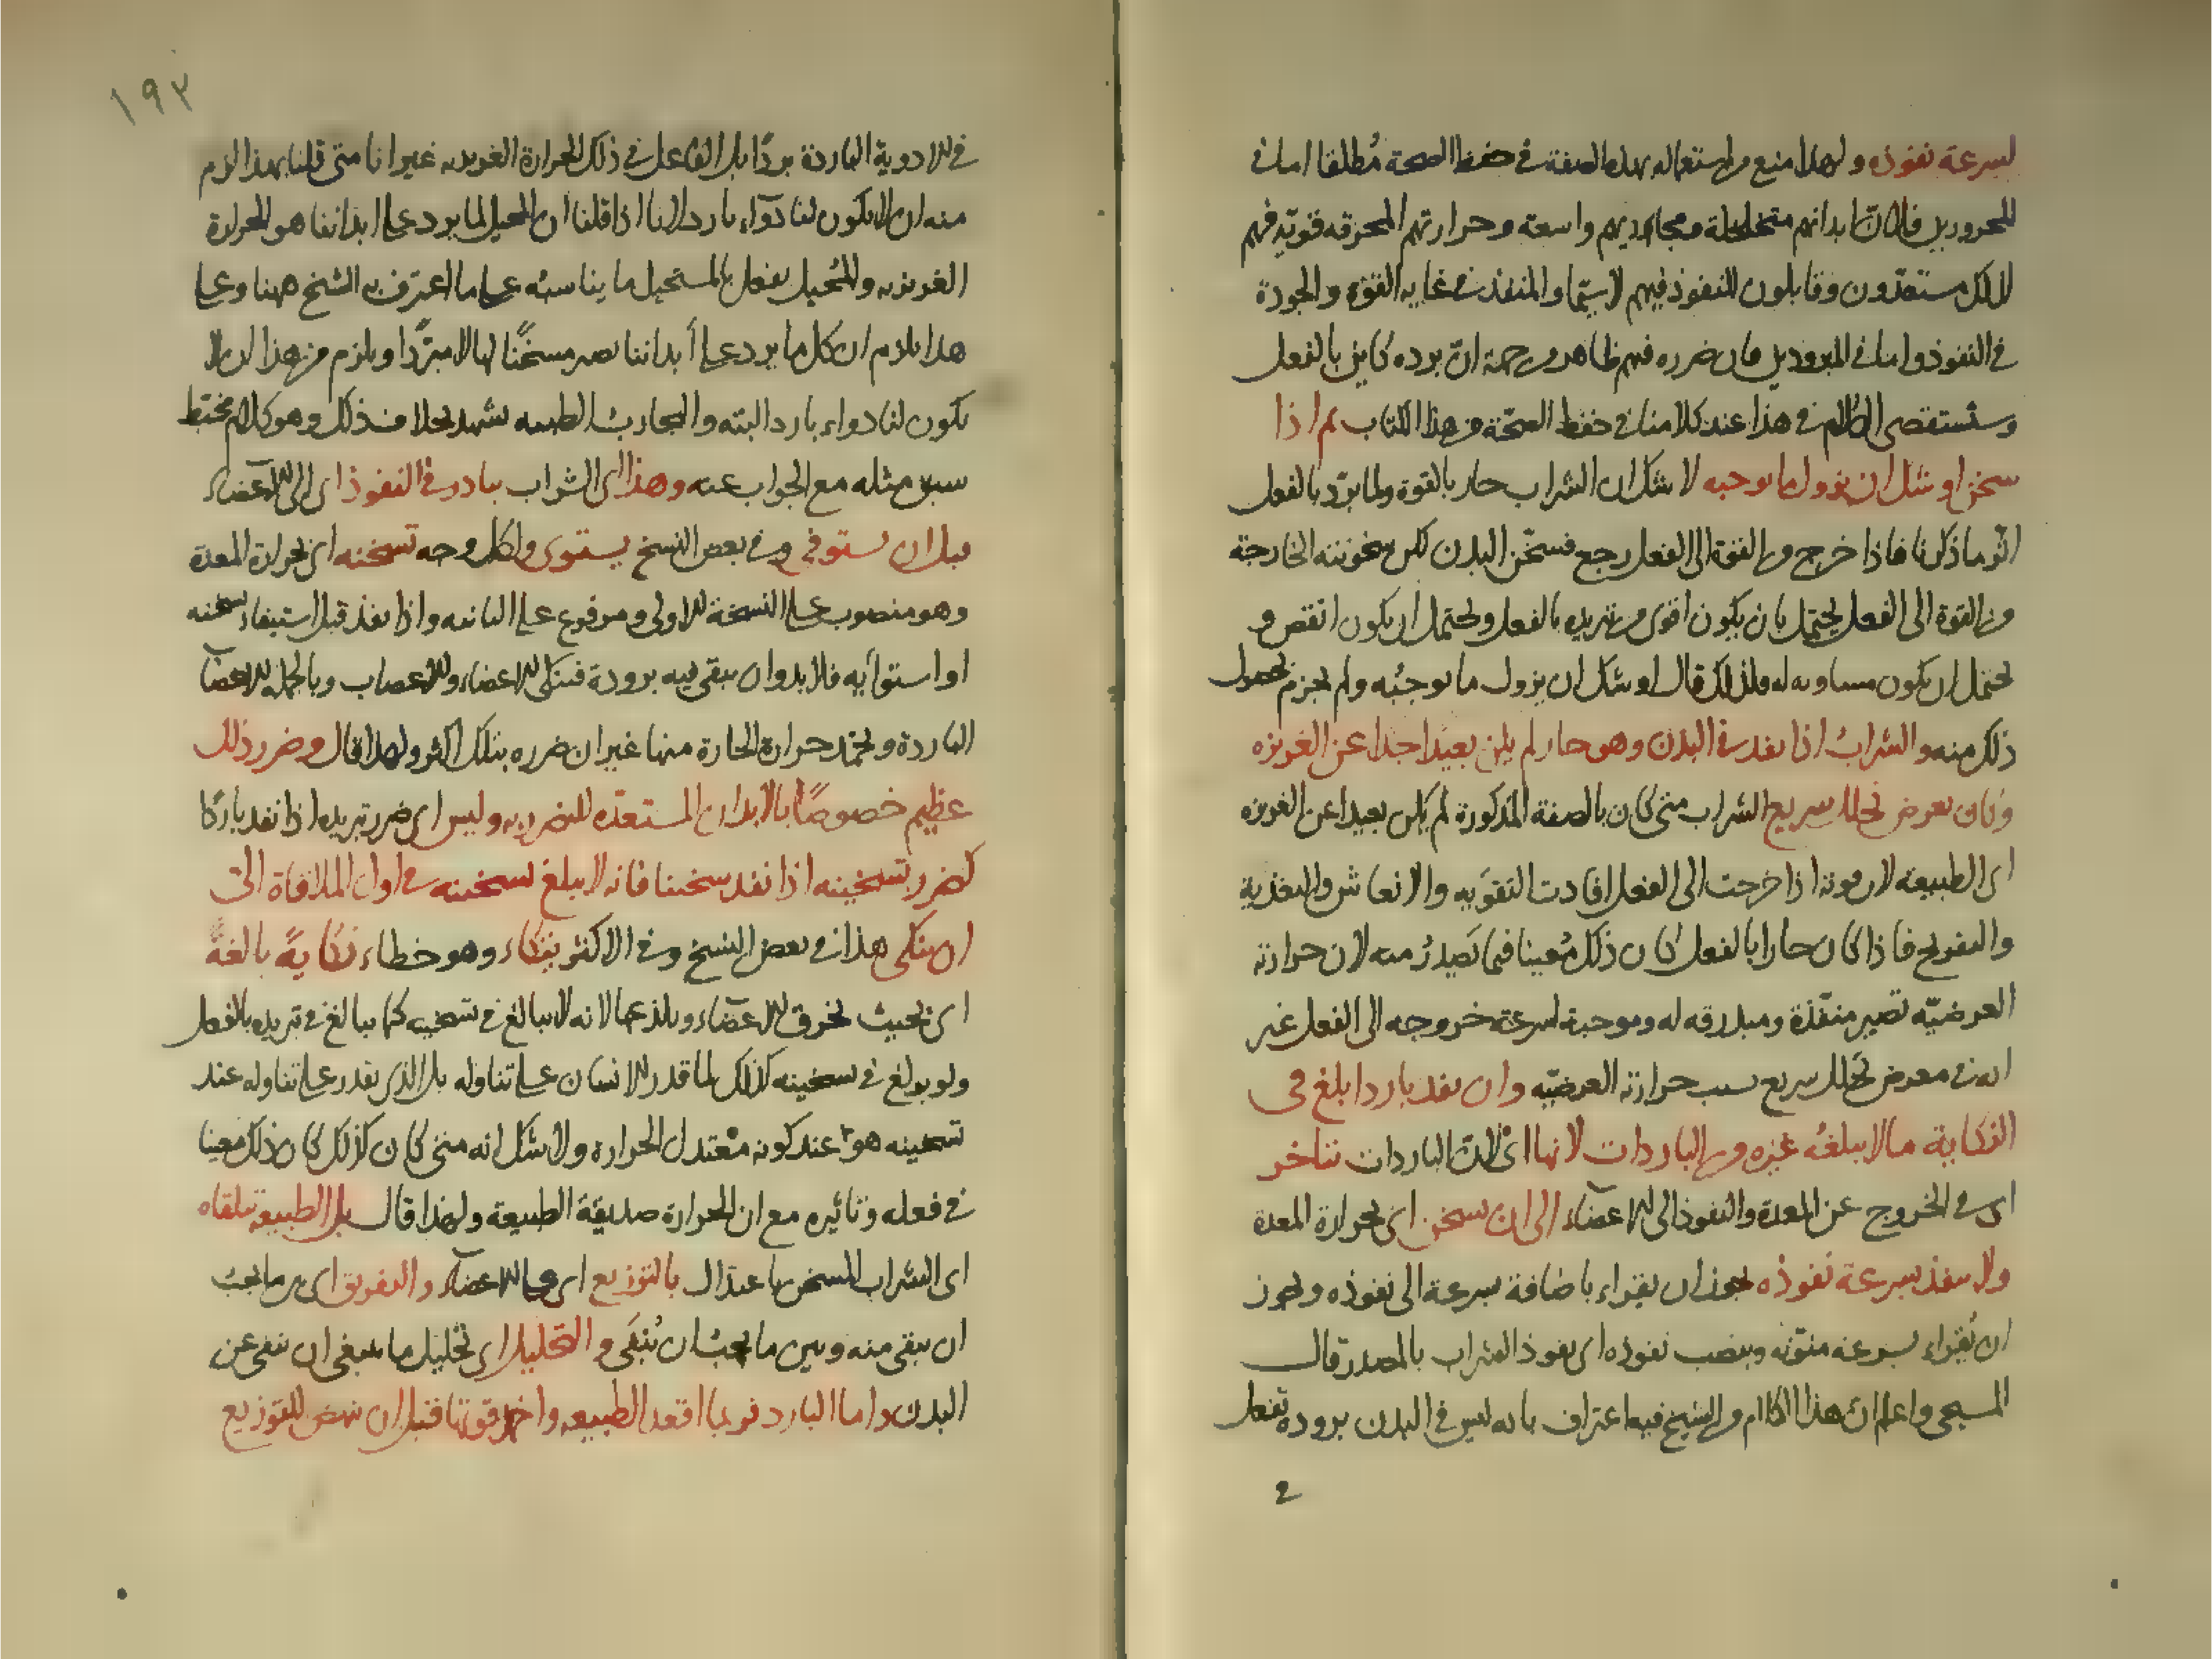 لسرعة نفوذه ولهذا منع من استعماله بهذه الصفة في حفظ الصحة مُطلقا اما في
المحرورين فلان ابدانهم متخلخلة ومجاريهم واسعة وحرارتهم المحرقه قويّه فهم
لذلك مستعدّون وقابلون للنفوذ فيهم لا سيّما والمنفذ في غايه القوّه والجودة
في النفوذ واما في المبرودين فان ضرره فيهم ظاهر من جهة انّ برده كاين بالفعل
وسنستقصى الكلام في هذا عند كلامنا في حفظ الصحّة من هذا الكتاب ثم اذا
سخن اوشك ان يزول ما يوجبه لا شك ان الشراب حار بالقوة ولما برّد بالفعل
اثر ما ذكرنا فاذا خرج من القوة الى الفعل رجع فسخّن البدن لكن سخونته الخارجة
من القوة الى الفعل يحتمل بان يكون اقوى من تبريده بالفعل ويحتمل ان يكون انقص و
يحتمل ان يكون مساويه له ولذلك قال اوشك ان يزول ما يوجبُه ولم يجزم بحصول
ذلك منه والشرابُ اذا نفد في البدن وهو حار لم يكن بعيدا جدا عن الغريزه
وكان بعرض تحلل سريع الشراب متى كان بالصفة المذكورة لم يكن بعيدا عن الغريزه
اى الطبيعة لان قوته اذا خرجت الى الفعل افادت التقويه والانعاش والتغذية
والتفريح فاذا كان حارا بالفعل كان ذلك مُعينا فيما يَصدرُ منه لان حرارته
العرضيّه تصير منفّذة ومبدرقه له وموجبة لسرعة خروجه الى الفعل غير
انه في معرض تحَلل سريع بسبب حرارته العرضيّه وان نفد باردا بلغ في
النكاية ما لا يبلغُه غيره من الباردات لانها اى لانّ الباردات تتاخر
اى في الخروج عن المعدة والنفوذ الى الاعضاء الى ان تسخن اى بحرارة المعدة
ولا تنفذ بسرعة نفوذه يجوز ان يقراء باضافة سرعة الى نفوذه ويجوز
ان يُقراء بسرعة منوّنه وبنصب نفوذه اى نفوذ الشراب بالمصدر قال
المسيحى واعلم ان هذا الكلام من الشيخ فيه اعتراف بانه ليس في البدن برودة تفعل
2
١٩٢
في الادوية الباردة بردًا بل الفاعل في ذلك الحرارة الغريزيه غير انا متى قلنا بهذا لزم
منه ان لا يكون لنا دوآء بارد لانا اذا قلنا ان المحيل لما يرد على ابداننا هو الحرارة
الغريزيه والمُحيل يفعل بالمستحيل ما يناسبُه على ما اعترف به الشيخ ههنا وعلى
هذا يلزم ان كل ما يرد على أبداننا يصير مسخّنًا لها لا مبرّدا ويلزم من هذا ان لا
يكون لنا دواء بارد البته والتجاربُ الطبيه تشهد بخلاف ذلك وهو كلام مختبط
سبق مثله مع الجواب عنه وهذا اى الشراب يبادر في النفوذ اى الى الاعضاء
قبل ان يستوفى وفي بعض النسخ يستوى ولكل وجه تسخنه اى بحرارة المعدة
وهو منصوب على النسخة الاولى ومرفوع على الثانيه واذا نفذ قبل استيفاء تسخنه
او استوآيه فلا بد وان يبقى فيه برودة فينكى الاعضاء والاعصاب وبالجملة الاعضآ
الباردة ويخمد حرارة الحارة منها غير ان ضرره بتلك اكثر ولهذا قال وضرر ذلك
عظيم خصوصًا بالابدان المستعدّه للتضرر به وليس اى ضرر تبريده اذا نفد باردًا
كضرر تسخينه اذا نفد سخينا فانه لا يبلغ تسخينه في اول الملاقاة الى
ان ينكى هذا في بعض النسخ وفي الاكثر ينكاء وهو خطاء نكايةً بالغةً
اى بحيث يحرق الاعضآء ويلذعها لانه لا يبالغ في تسخينه كما يبالغ في تبريده بالفعل
ولو بولغ في تسخينه كذلك لما قدر الانسان على تناوله بل الذى يقدر على تناوله عند
تسخينه هو عند كونه معتدل الحرارة ولا شك انه متى كان كذلك كان ذلك معينا
في فعله وتاثيره مع ان الحرارة صديقة الطبيعة ولهذا قال بل الطبيعة تتلقاه
اى الشراب المسخن باعتدال بالتوزيع اى على الاعضآء والتفريق اى بين ما يجبُ
ان يبقى منه وبين ما يجبُ ان يُنقَى والتحليل اى تحليل ما ينبغى ان ينفى عن
البدن واما البارد فربما اقعد الطبيعه واخمد قوتها قبل ان تنهض للتوزيع